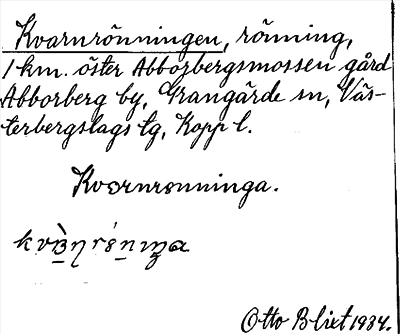 Kvarnrönningen, rönning,
1 km. öster Abborbergsmossen gård
Abborberg by, Grangärde sn, Väs-
terbergslags tg, Kopp l.
Kvornrønninga.
Otto Blixt 1934.